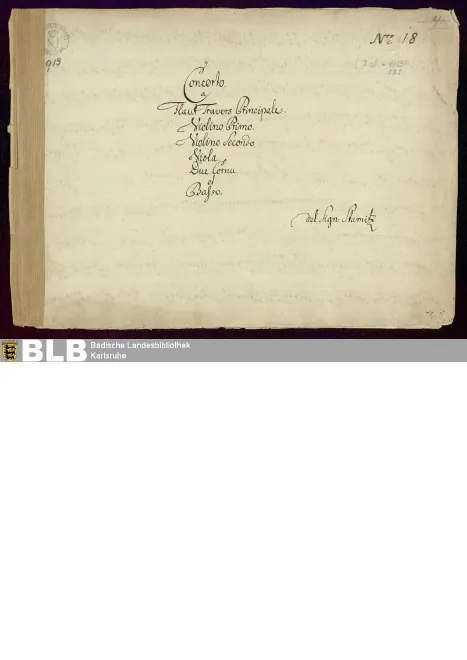 Nro 18
913
Concerto
a
Flaut Travers Principale.
Violino Primo.
Violino Secondo
Viola
Due Cornu
et
Basso.
del Sign: Stamitz
BLB
Badische Landesbibliothek
Karlsruhe